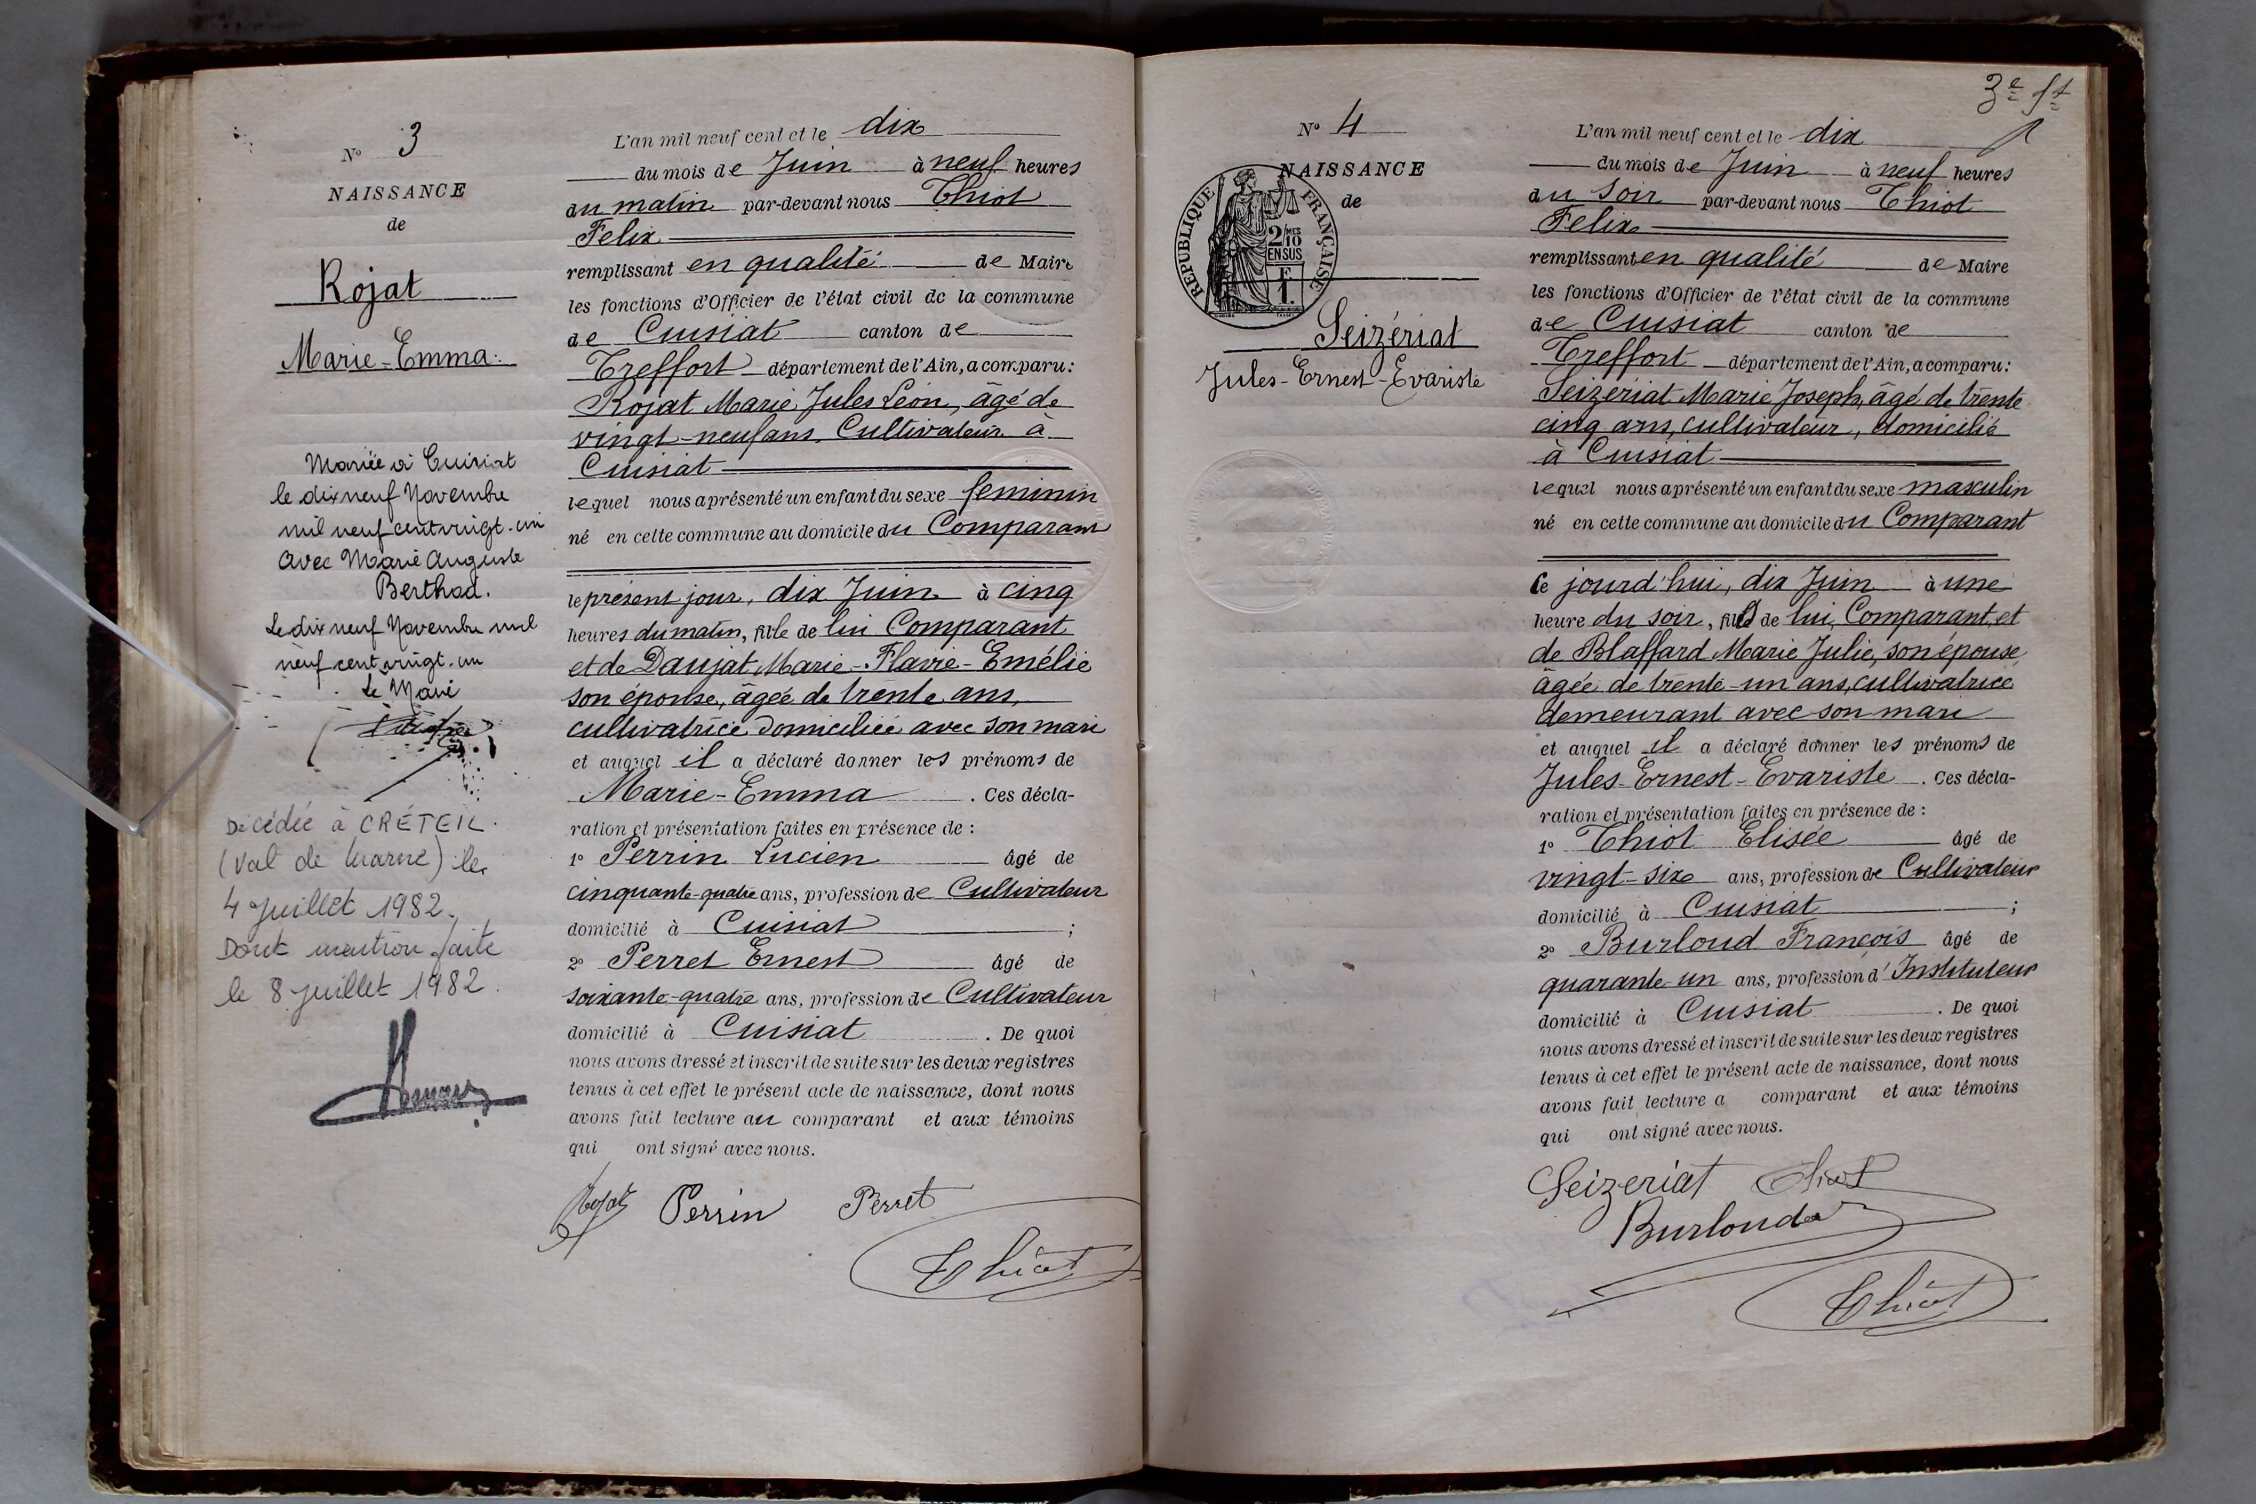 N° 3
NAISSANCE
de
Rojat
Marie-Emma.
Mariée à Cuisiat
le dix neuf Novembre
mil neuf cent vingt-un
avec Marie Auguste
Berthod.
Le dix neuf Novembre mil
neuf cent vingt-un
Le Maire
Décédée à CRÉTEIL.
(Val de Marne) le
4 Juillet 1982.
Dont mention faite
le 8 juillet 1982.
L'an mil neuf cent et le dix
du mois de Juin à neuf heures
du matin par-devant nous Thiot
Felix
remplissant en qualité de Maire
les fonctions d'Officier de l'état civil de la commune
de Cuisiat canton de
Treffort département de l'Ain, a comparu:
Rojat Marie Jules Léon, âgé de
vingt-neuf ans, Cultivateur à
Cuisiat
lequel nous a présenté un enfant du sexe feminin
né en cette commune au domicile du Comparant
le présent jour, dix Juin à cinq
heures du matin, fille de lui Comparant
et de Daujat Marie-Flavie-Emélie
son épouse, âgée de trente ans,
cultivatrice domiciliée avec son mari
et auquel il a déclaré donner les prénoms de
Marie-Emma . Ces décla-
ration et présentation faites en présence de :
1° Perrin Lucien âgé de
cinquante-quatre ans, profession de Cultivateur
domicilié à Cuisiat ;
2° Perret Ernest âgé de
soixante-quatre ans, profession de Cultivateur
domicilié à Cuisiat . De quoi
nous avons dressé et inscrit de suite sur les deux registres
tenus à cet effet le présent acte de naissance, dont nous
avons fait lecture au comparant et aux témoins
qui ont signé avec nous.
Rojat Perrin Perret
Thiot
3e ft
N° 4
NAISSANCE
de
REPUBLIQUE FRANÇAISE
2/10 MES
EN SUS
F
1.
Seizériat
Jules-Ernest-Evariste
L'an mil neuf cent et le dix
du mois de Juin à neuf heures
du soir par-devant nous Thiot
Felix
remplissant en qualité de Maire
les fonctions d'Officier de l'état civil de la commune
de Cuisiat canton de
Treffort département de l'Ain, a comparu:
Seizériat Marie Joseph, âgé de trente
cinq ans, cultivateur, domicilié
à Cuisiat
lequel nous a présenté un enfant du sexe masculin
né en cette commune au domicile du Comparant
Ce jourd'hui, dix Juin à une
heure du soir, fils de lui, Comparant, et
de Blaffard Marie Julie, son épouse
âgée de trente-un ans, cultivatrice
demeurant avec son mari
et auquel il a déclaré donner les prénoms de
Jules-Ernest-Evariste . Ces décla-
ration et présentation faites en présence de :
1° Thiot Elisée âgé de
vingt-six ans, profession de Cultivateur
domicilié à Cuisiat ;
2° Burloud François âgé de
quarante-un ans, profession d'Instituteur
domicilié à Cuisiat . De quoi
nous avons dressé et inscrit de suite sur les deux registres
tenus à cet effet le présent acte de naissance, dont nous
avons fait lecture a comparant et aux témoins
qui ont signé avec nous.
Seizeriat Thiot
Burloud
Thiot